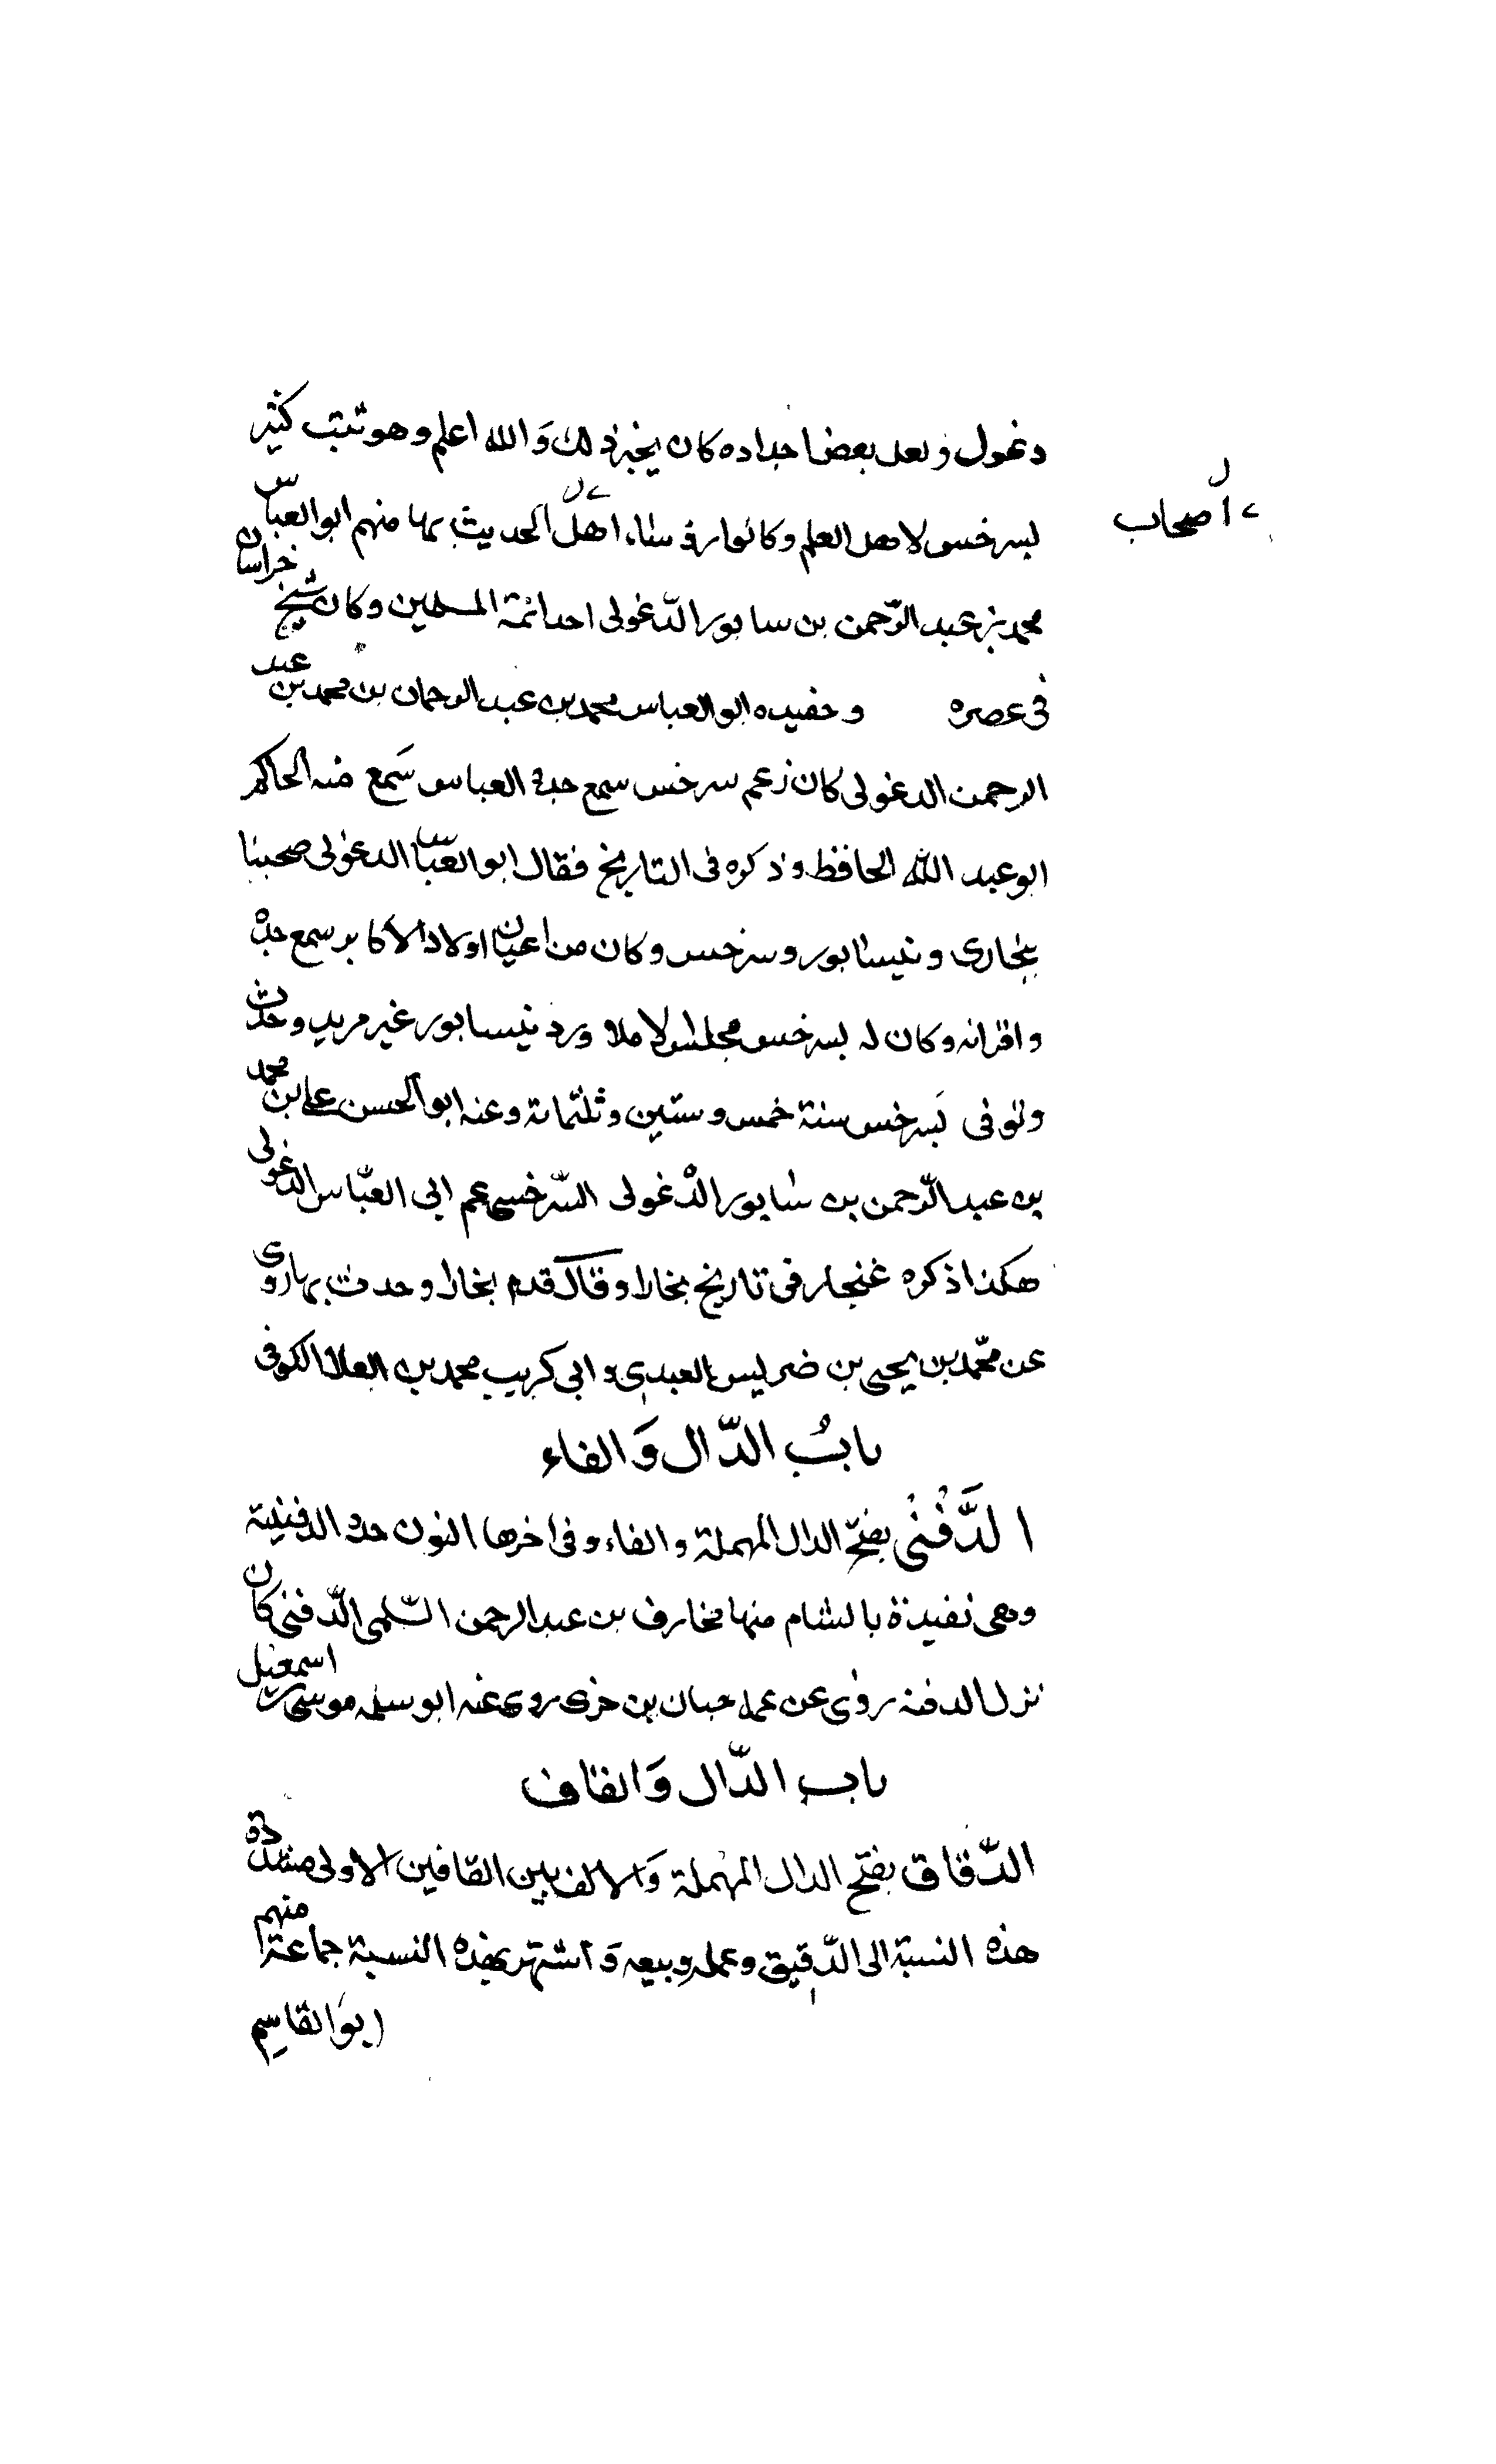 دغول ولعل بعض اجداده كان يخبز ذلك وَالله اعلم وهو بيت كثير
بسرخس لاهل العلم وكانوا رؤساء اهل الحديث بها منهم ابو العباس
أصحاب
محمد بن عبد الرّحمن بن سابور الدّغولى احد ائمة المسلمين وكان شيخ خراسان
فى عصره وحفيده ابو العباس محمد بن عبد الرحمان بن محمد بن عبد
الرحمن الدغولى كان زعيم سرخس سمع جده العباس سَمع منه الحاكم
ابو عبد اللّٰه الحافظ وذكره فى التاريخ فقال ابو العبّاس الدغولى صحبنا
ببخارى ونيسابور وسرخس وكان من اعيان اولاد الاكابر سمع جده
واقرانه وكان له بسرخس مجلس الاملا ورد نيسابور غير مرة وحدث
وتوفى بَسرخس سنة خمس وستين وثلثمائة وعنه ابو الحسن على بن محمد
بن عبد الرّحمن بن سابور الدّغولى السّرخسى عم ابى العبّاس الدغولى
هكذا ذكره غنجار فى تاريخ بخارا وقال قدم بخارا وحدث بها روى
عن محمّد بن يحيى بن ضريس العبدى وابى كريب محمد بن العلاء الكوفى
بابُ الدّال وَالفاء
الدَّفْنْى بفتح الدال المهملة والفاء وفى اخرها النون هذه الدفينية
وهى نفيذة بالشام منها مخارق بن عبد الرحمن السّلمى الدّفنى كان
نزل الدفنة روى عن عمه حبان بن جزى روى عنه ابو سلمه موسى بن اسمعيل
باب الدّال وَالقاف
الدّقاق بفتح الدال المهملة وَالالف بين القافين الاولى مشددة
هذه النسبة الى الدّقيق وعمله وبيعه وَاشتهر بهذه النسبة جماعة منهم
ابوَ القاسم